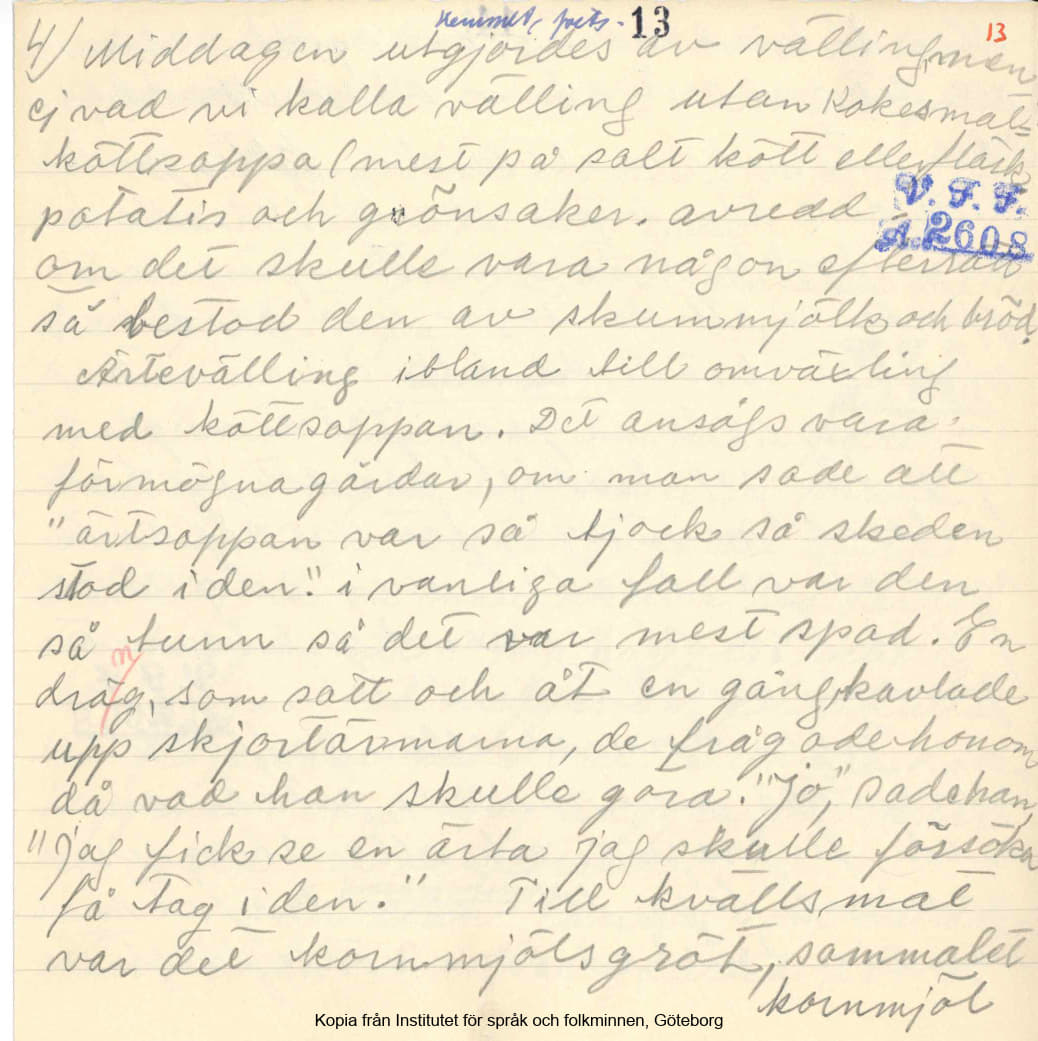 Hemmet, forts. 13 13
4) Middagen utgjordes av välling, men
ej vad vi kalla välling utan Kokesmat=
köttsoppa (mest på salt kött eller fläsk
potatis och grönsaker. avredd
V. F. F.
A. 2608
om det skulle vara någon efterrätt
så bestod den av skummjölk och bröd.
Ärtevälling ibland till omväxling
med köttsoppan. Det ansågs vara
förmögna gårdar, om man sade att
"ärtsoppan var så tjock så skeden
stod i den." i vanliga fall var den
så tunn så det var mest spad. En
dräng, som satt och åt en gång, kavlade
upp skjortärmarna, de frågade honom
då vad han skulle göra. "Jo", sade han,
"jag fick se en ärta jag skulle försöka
få tag i den." Till kvällsmat
var det kornmjölsgröt, sammalet
kornmjöl
Kopia från Institutet för språk och folkminnen, Göteborg